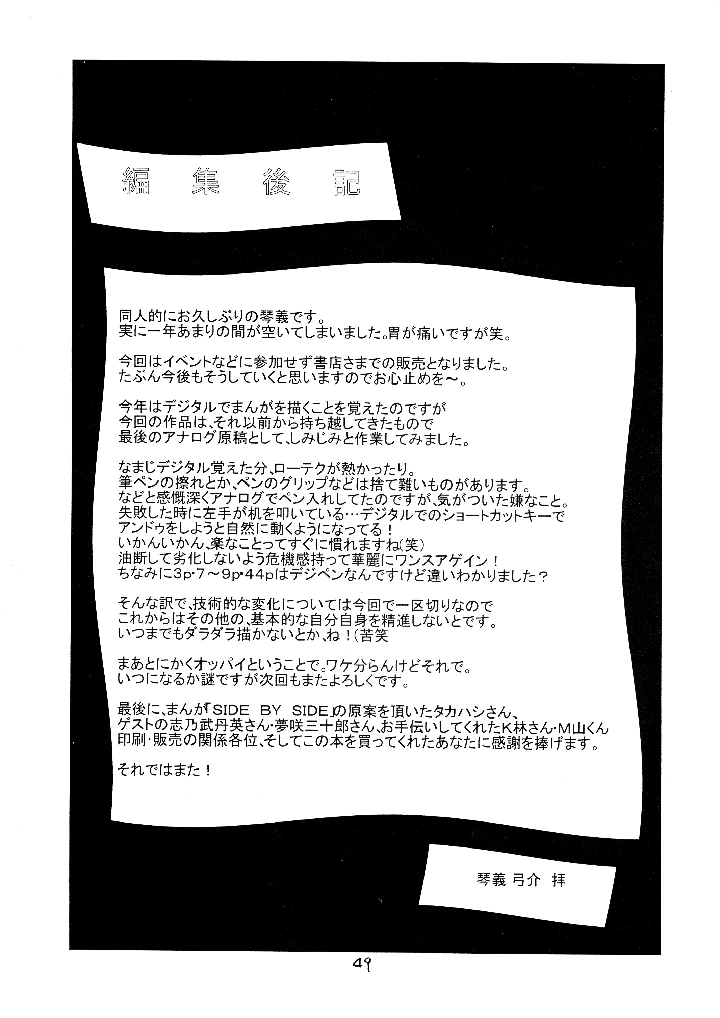 編集後記
同人的にお久しぶりの琴義です。
実に一年あまりの間が空いてしまいました。胃が痛いですが笑。
今回はイベントなどに参加せず書店さまでの販売となりました。
たぶん今後もそうしていくと思いますのでお心止めを〜。
今年はデジタルでまんがを描くことを覚えたのですが
今回の作品は、それ以前から持ち越してきたもので
最後のアナログ原稿として、しみじみと作業してみました。
なまじデジタル覚えた分、ローテクが熱かったり。
筆ペンの擦れとか、ペンのグリップなどは捨て難いものがあります。
などと感慨深くアナログでペン入れしてたのですが、気がついた嫌なこと。
失敗した時に左手が机を叩いている…デジタルでのショートカットキーで
アンドゥをしようと自然に動くようになってる！
いかんいかん、楽なことってすぐに慣れますね(笑)
油断して劣化しないよう危機感持って華麗にワンスアゲイン！
ちなみに3p・7〜9p・44pはデジペンなんですけど違いわかりました？
そんな訳で、技術的な変化については今回で一区切りなので
これからはその他の、基本的な自分自身を精進しないとです。
いつまでもダラダラ描かないとか、ね！(苦笑
まあとにかくオッパイということで。ワケ分らんけどそれで。
いつになるか謎ですが次回もまたよろしくです。
最後に、まんが「SIDE BY SIDE」の原案を頂いたタカハシさん、
ゲストの志乃武丹英さん・夢咲三十郎さん、お手伝いしてくれたK林さん・M山くん
印刷・販売の関係各位、そしてこの本を買ってくれたあなたに感謝を捧げます。
それではまた！
琴義弓介 拝
49